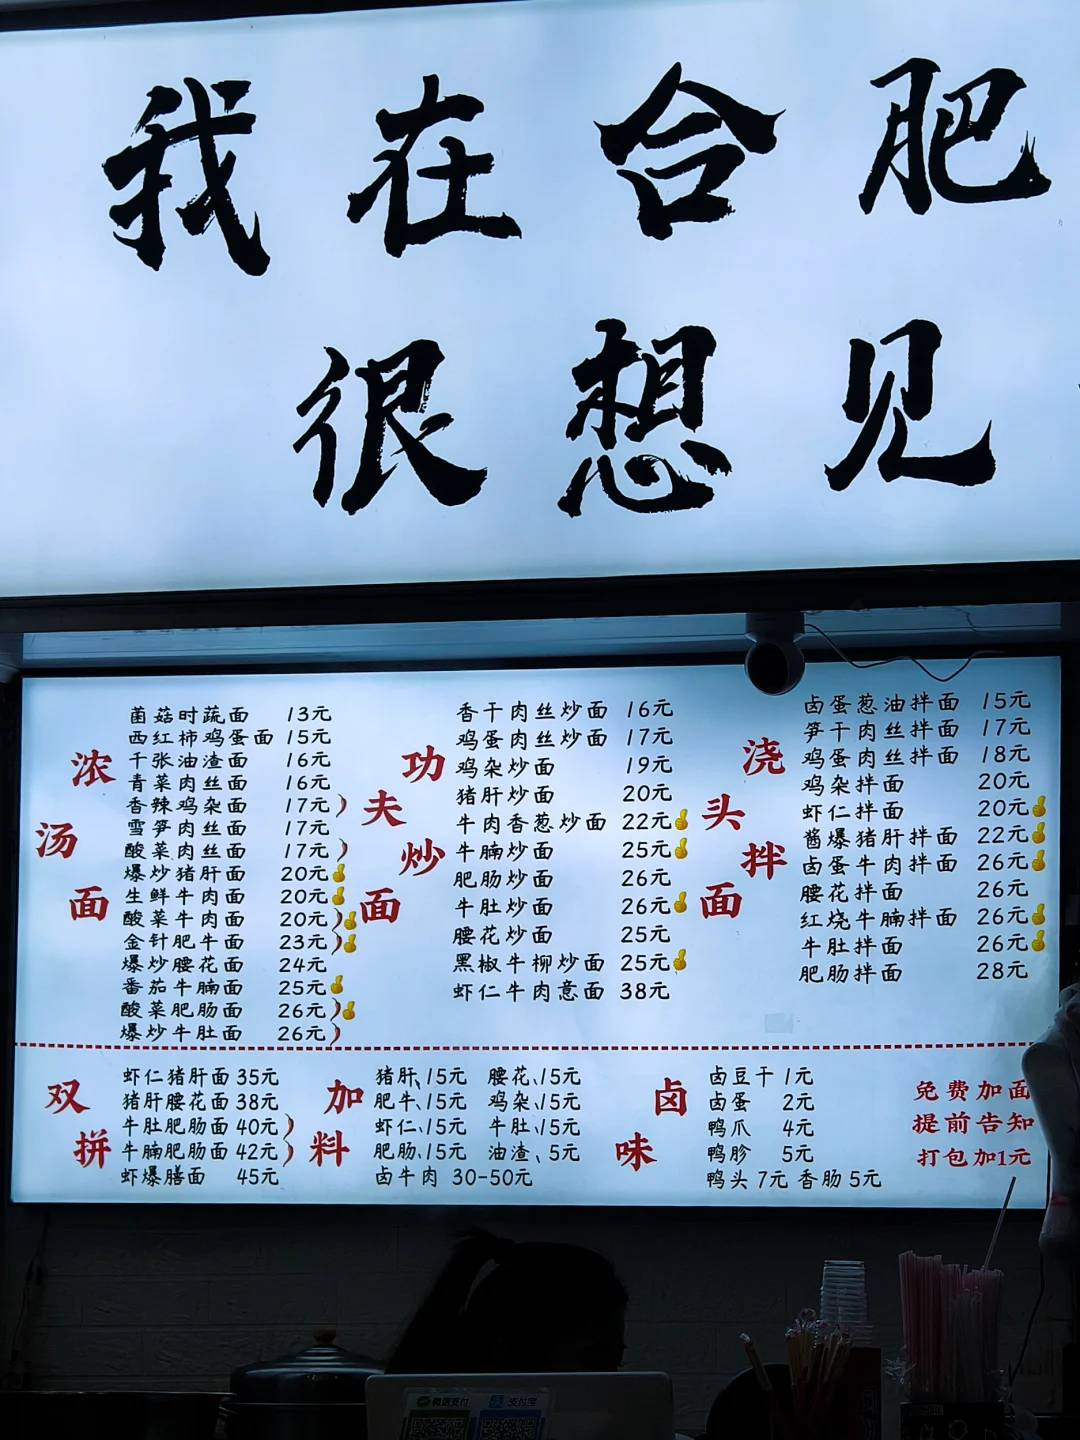 我在合肥
很想见
浓汤面
菌菇时蔬面 13元
西红柿鸡蛋面 15元
千张油渣面 16元
青菜肉丝面 16元
香辣鸡杂面 17元
雪笋肉丝面 17元
酸菜肉丝面 17元
爆炒猪肝面 20元
生鲜牛肉面 20元
酸菜牛肉面 20元
金针肥牛面 23元
爆炒腰花面 24元
番茄牛腩面 25元
酸菜肥肠面 26元
爆炒牛肚面 26元
功夫炒面
香干肉丝炒面 16元
鸡蛋肉丝炒面 17元
鸡杂炒面 19元
猪肝炒面 20元
牛肉香葱炒面 22元
牛腩炒面 25元
肥肠炒面 26元
牛肚炒面 26元
腰花炒面 25元
黑椒牛柳炒面 25元
虾仁牛肉意面 38元
浇头拌面
卤蛋葱油拌面 15元
笋干肉丝拌面 17元
鸡蛋肉丝拌面 18元
鸡杂拌面 20元
虾仁拌面 20元
酱爆猪肝拌面 22元
卤蛋牛肉拌面 26元
腰花拌面 26元
红烧牛腩拌面 26元
牛肚拌面 26元
肥肠拌面 28元
双拼
虾仁猪肝面 35元
猪肝腰花面 38元
牛肚肥肠面 40元
牛腩肥肠面 42元
虾爆膳面 45元
加料
猪肝、15元 腰花、15元
肥牛、15元 鸡杂、15元
虾仁、15元 牛肚、15元
肥肠、15元 油渣、5元
卤牛肉 30-50元
卤味
卤豆干 1元
卤蛋 2元
鸭爪 4元
鸭胗 5元
鸭头 7元 香肠 5元
免费加面
提前告知
打包加1元
微信支付 支付宝